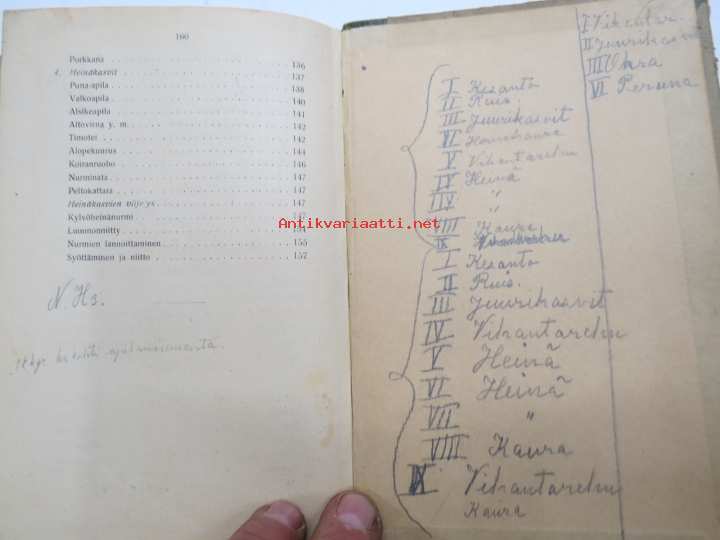 160
Porkkana 136
4. Heinäkasvit 137
Puna-apila 138
Valkoapila 140
Alsikeapila 141
Aitovirna y. m. 142
Timotei 142
Alopekuurus 144
Koiranruoho 146
Nurminata 147
Peltokattara 147
Heinäkasvien viljelys 147
Kylvöheinänurmi 147
Luonnonniitty 154
Nurmien lannoittaminen 155
Syöttäminen ja niitto 157
N. Hs.
Antikvariaatti.net
I Kesanto
II Ruis
III Juurikasvit
VI
V Vihantarehu
IV Heinä
IIV "
VIII Kaura
IX
I Kesanto
II Ruis.
III Juurikasvit
IV Vihantarehu
V Heinä
VI Heinä
VII "
VIII Kaura
IX Vihantarehu
Kaura
I
II Juurikasvit
III Ohra
VI Peruna